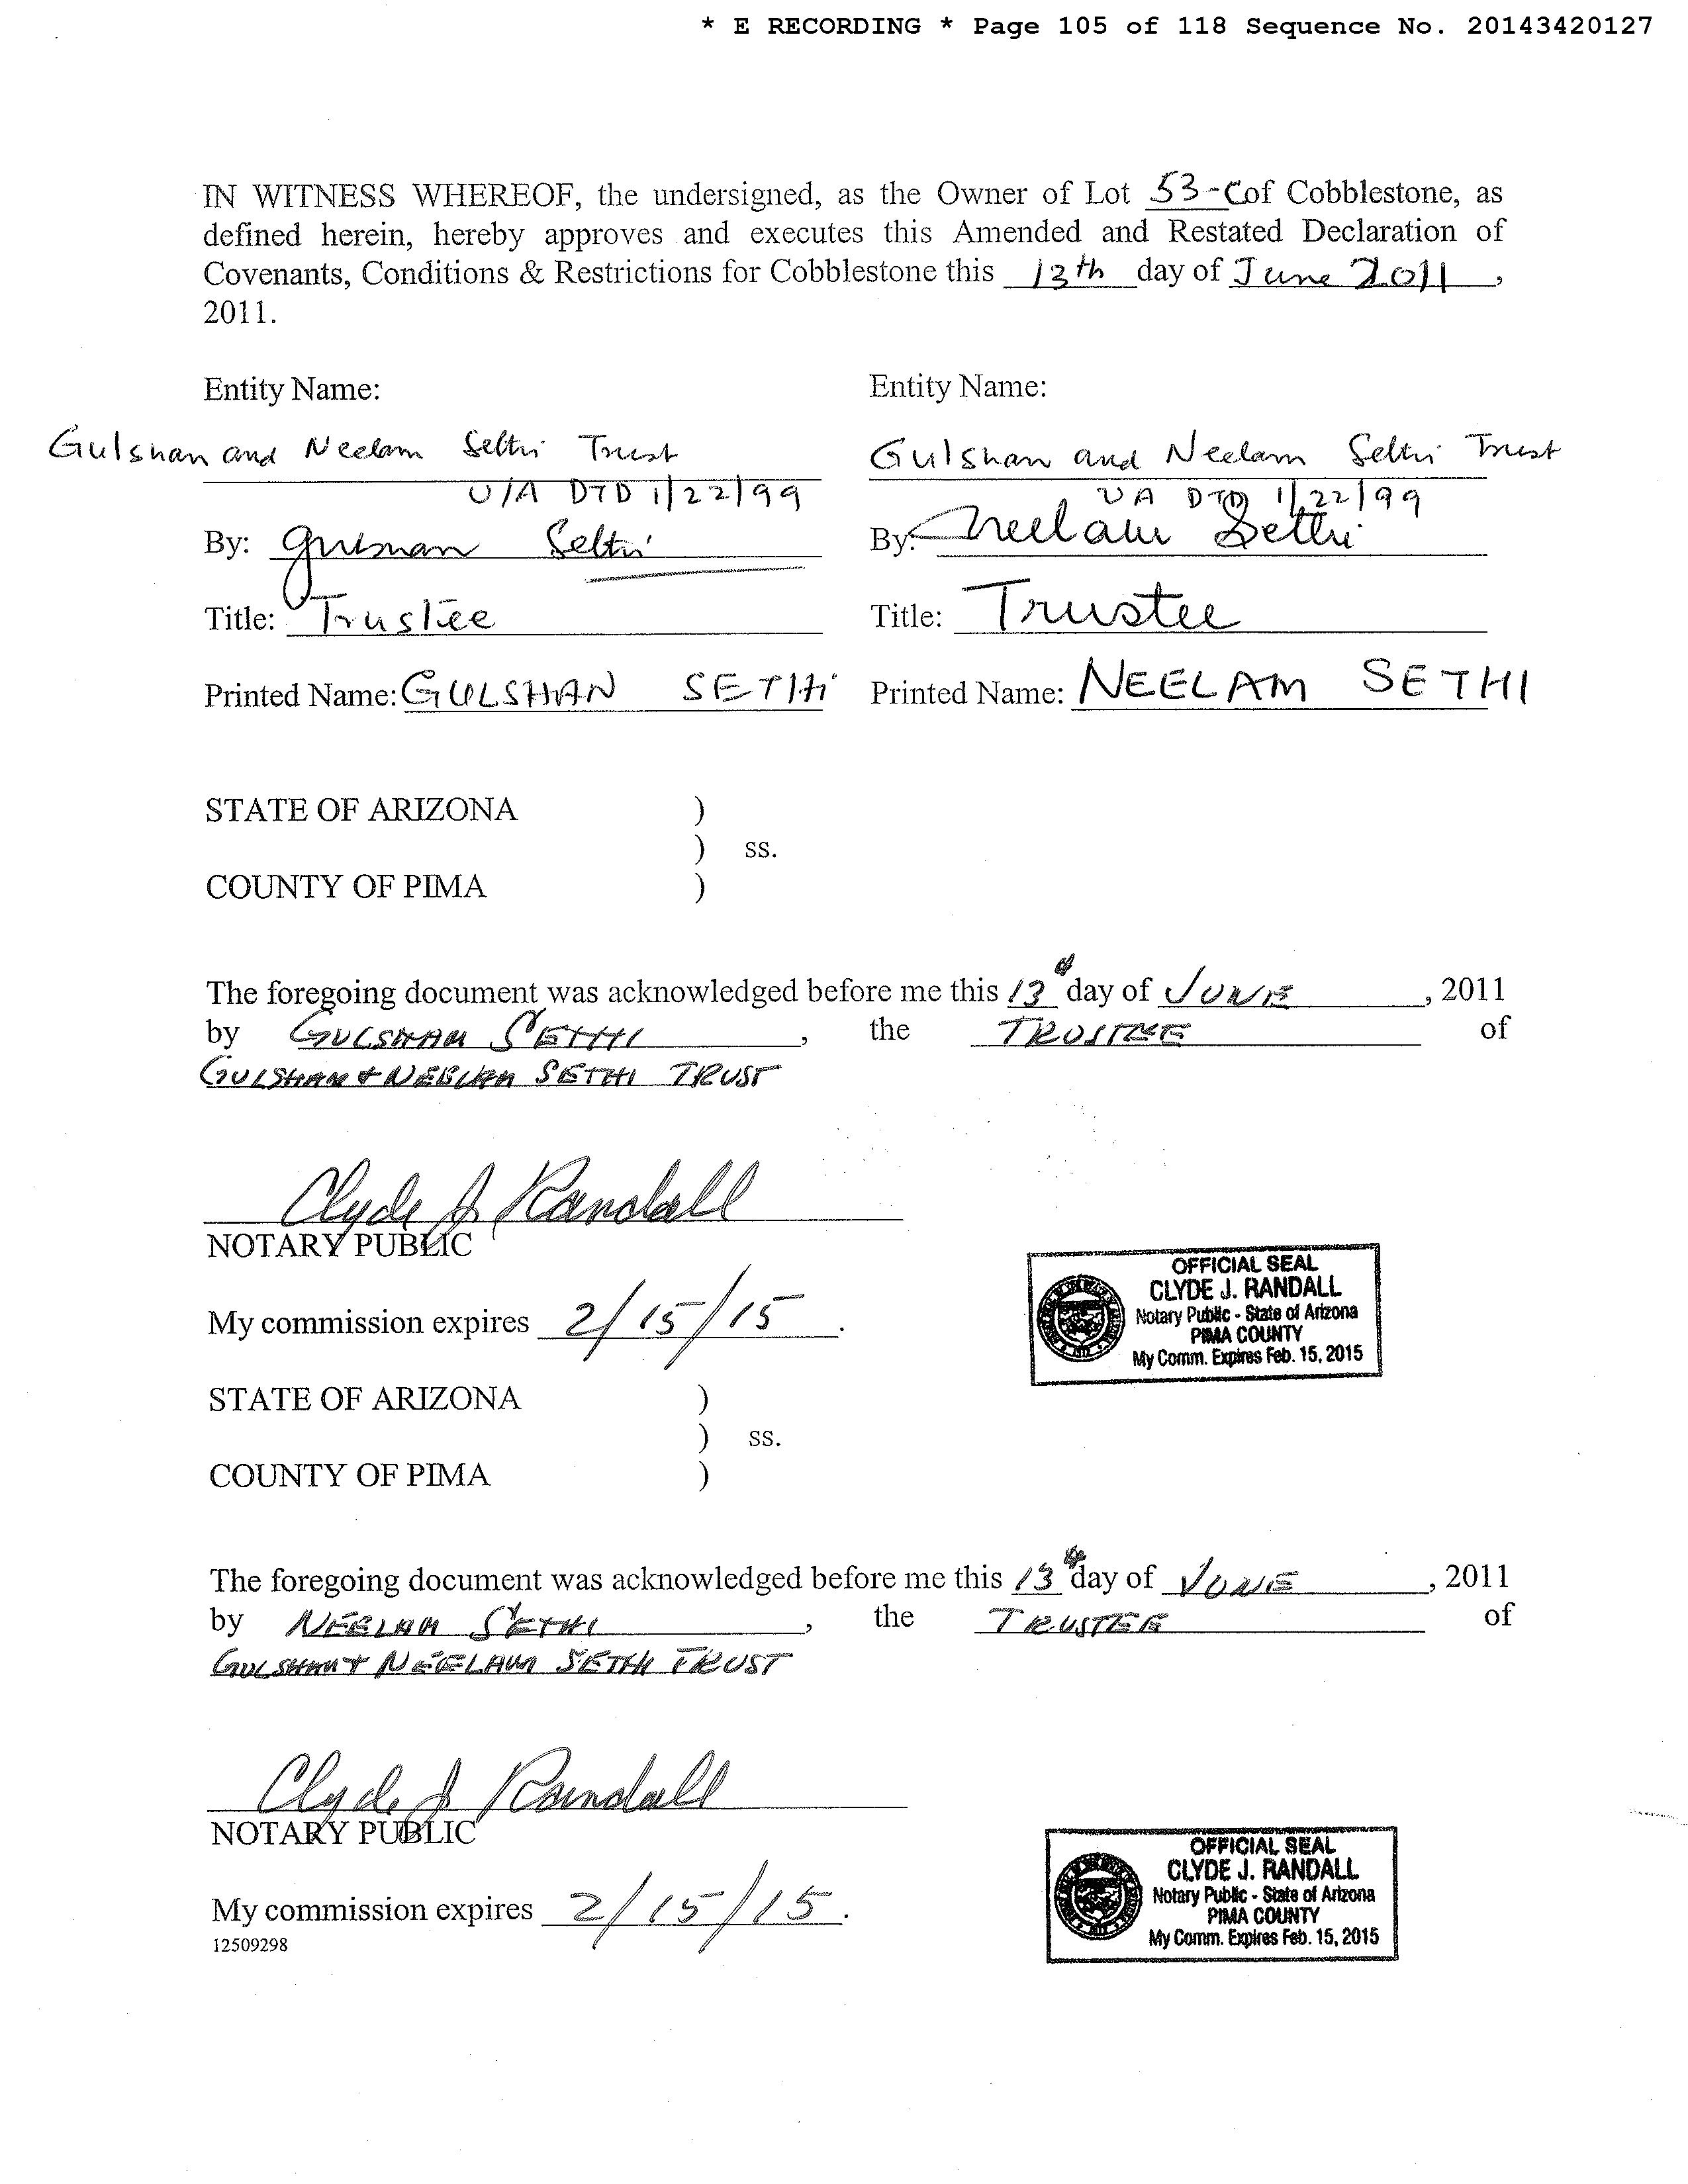 * E RECORDING * Page 105 of 118 Sequence No. 20143420127
IN WITNESS WHEREOF, the undersigned, as the Owner of Lot 53-C of Cobblestone, as
defined herein, hereby approves and executes this Amended and Restated Declaration of
Covenants, Conditions & Restrictions for Cobblestone this 13th day of June 2011,
2011.
Entity Name: Entity Name:
Gulshan and Neelam Sethi Trust Gulshan and Neelam Sethi Trust
U/A DTD 1/22/99 UA DTD 1/22/99
By: Gulshan Sethi By: Neelam Sethi
Title: Trustee Title: Trustee
Printed Name: GULSHAN SETHI Printed Name: NEELAM SETHI
STATE OF ARIZONA )
) ss.
COUNTY OF PIMA )
The foregoing document was acknowledged before me this 13 day of JUNE, 2011
by GULSHAN SETHI, the TRUSTEE of
GULSHAN & NEELAM SETHI TRUST
Clyde J Randall
NOTARY PUBLIC
OFFICIAL SEAL
CLYDE J. RANDALL
Notary Public - State of Arizona
PIMA COUNTY
My Comm. Expires Feb. 15, 2015
My commission expires 2/15/15.
STATE OF ARIZONA )
) ss.
COUNTY OF PIMA )
The foregoing document was acknowledged before me this 13 day of JUNE, 2011
by NEELAM SETHI, the TRUSTEE of
GULSHAN & NEELAM SETHI TRUST
Clyde J Randall
NOTARY PUBLIC
OFFICIAL SEAL
CLYDE J. RANDALL
Notary Public - State of Arizona
PIMA COUNTY
My Comm. Expires Feb. 15, 2015
My commission expires 2/15/15.
12509298